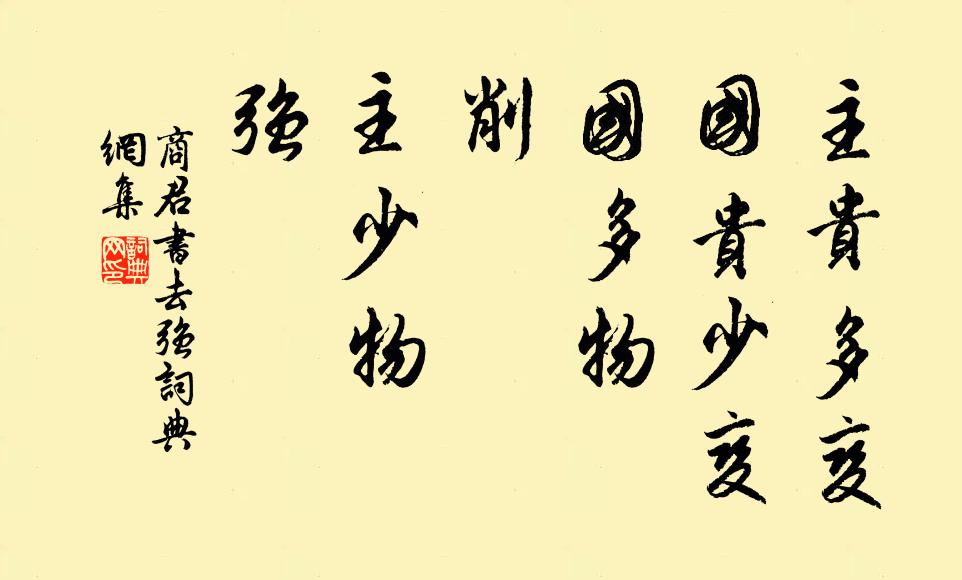 主貴多变
國貴少变
國多物
削
主少物
強
商君書去強詞典
網集
詞典
网印